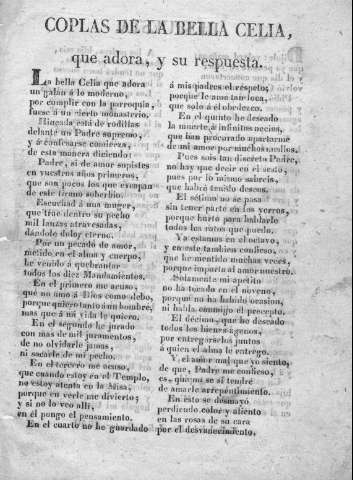 COPLAS DE LA BELLA CELIA,
que adora, y su respuesta.
La bella Celia que adora
un galán á lo moderno,
por cumplir con la parroquia,
fuese á un cierto monasterio.
Hincada está de rodillas
delante un Padre supremo,
y á confesarse comienza,
de esta manera diciendo:
Padre, si de amor supistes
en vuestros años primeros,
que son pocos los que escapan
de este tirano soberbio.
Escuchad á una muger,
que trae dentro su pecho
mil lanzas atravesadas,
dándole dolor eterno.
Por un pecado de amor,
metido en el alma y cuerpo,
he venido á quebrantar
todos los diez Mandamientos.
En el primero me acuso,
que no amo á Dios como debo,
porque quiero tanto á un hombre,
mas que á mi vida le quiero.
En el segundo he jurado
con mas de mil juramentos,
de no olvidarle jamas,
ni sacarle de mi pecho.
En el tercero me acuso,
que cuando estoy en el Templo,
no estoy atenta en la Misa,
porque en verle me divierto;
y si no lo veo allí,
en él pongo el pensamiento.
En el cuarto no he guardado
á mis padres el respeto,
porque le amo tan loca,
que solo á él obedezco.
En el quinto he deseado
la muerte á infinitos necios,
que han procurado apartarme
de mi amor por muchos
Pues sois tan discreto Padre,
no hay que decir en el sexto,
pues por lo mismo sabreis,
que habré tenido deseos.
El sétimo no se pasa
sin tener parte en los yerros,
porque hurto para hablarle
todos los ratos que puedo.
Ya estamos en el octavo,
y en este tambien confieso,
que he mentido muchas veces,
porque importa al amor nuestro.
Solamente mi apetito
no ha tocado en el noveno,
porque no ha habido ocasion,
ni habla conmigo el precepto.
El décimo, que he deseado
todos los bienes agenos,
por entregarselos juntos
á quien el alma le entrego.
Y el mal que yo siento,
de que, Padre me confieso,
es, que ma se al tendré
de amarle arrepentimiento.
En esto se desmayó
perdiendo color y aliento
en las rosas de su cara
por el desvanecimiento.